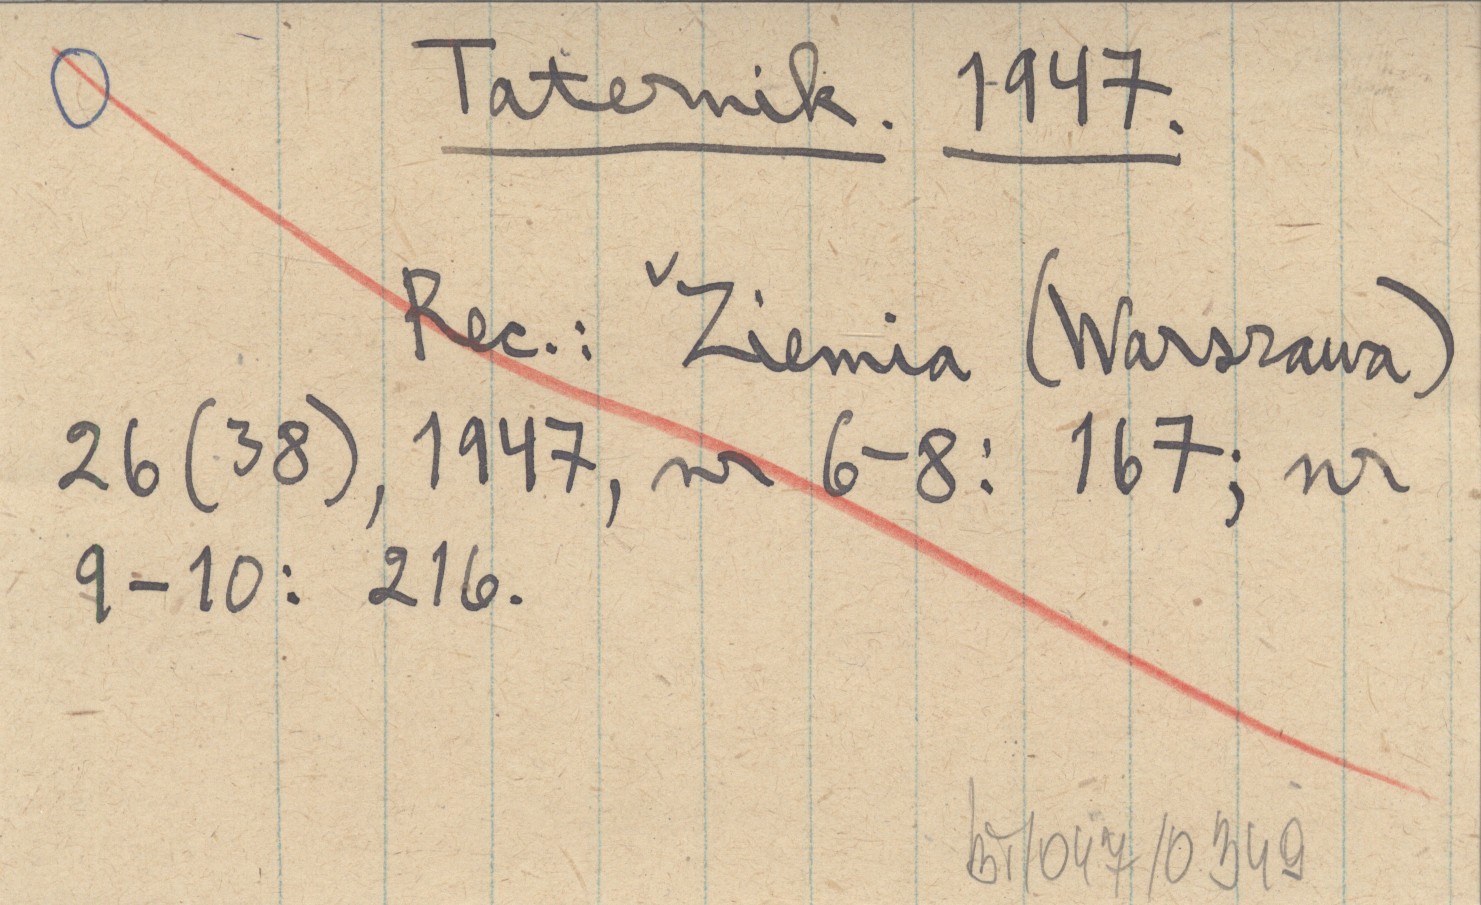 Taternik. 1947.
Rec.: ᵛZiemia (Warszawa)
26(38), 1947, nr 6-8: 167; nr
9-10: 216.
bT/047/0349